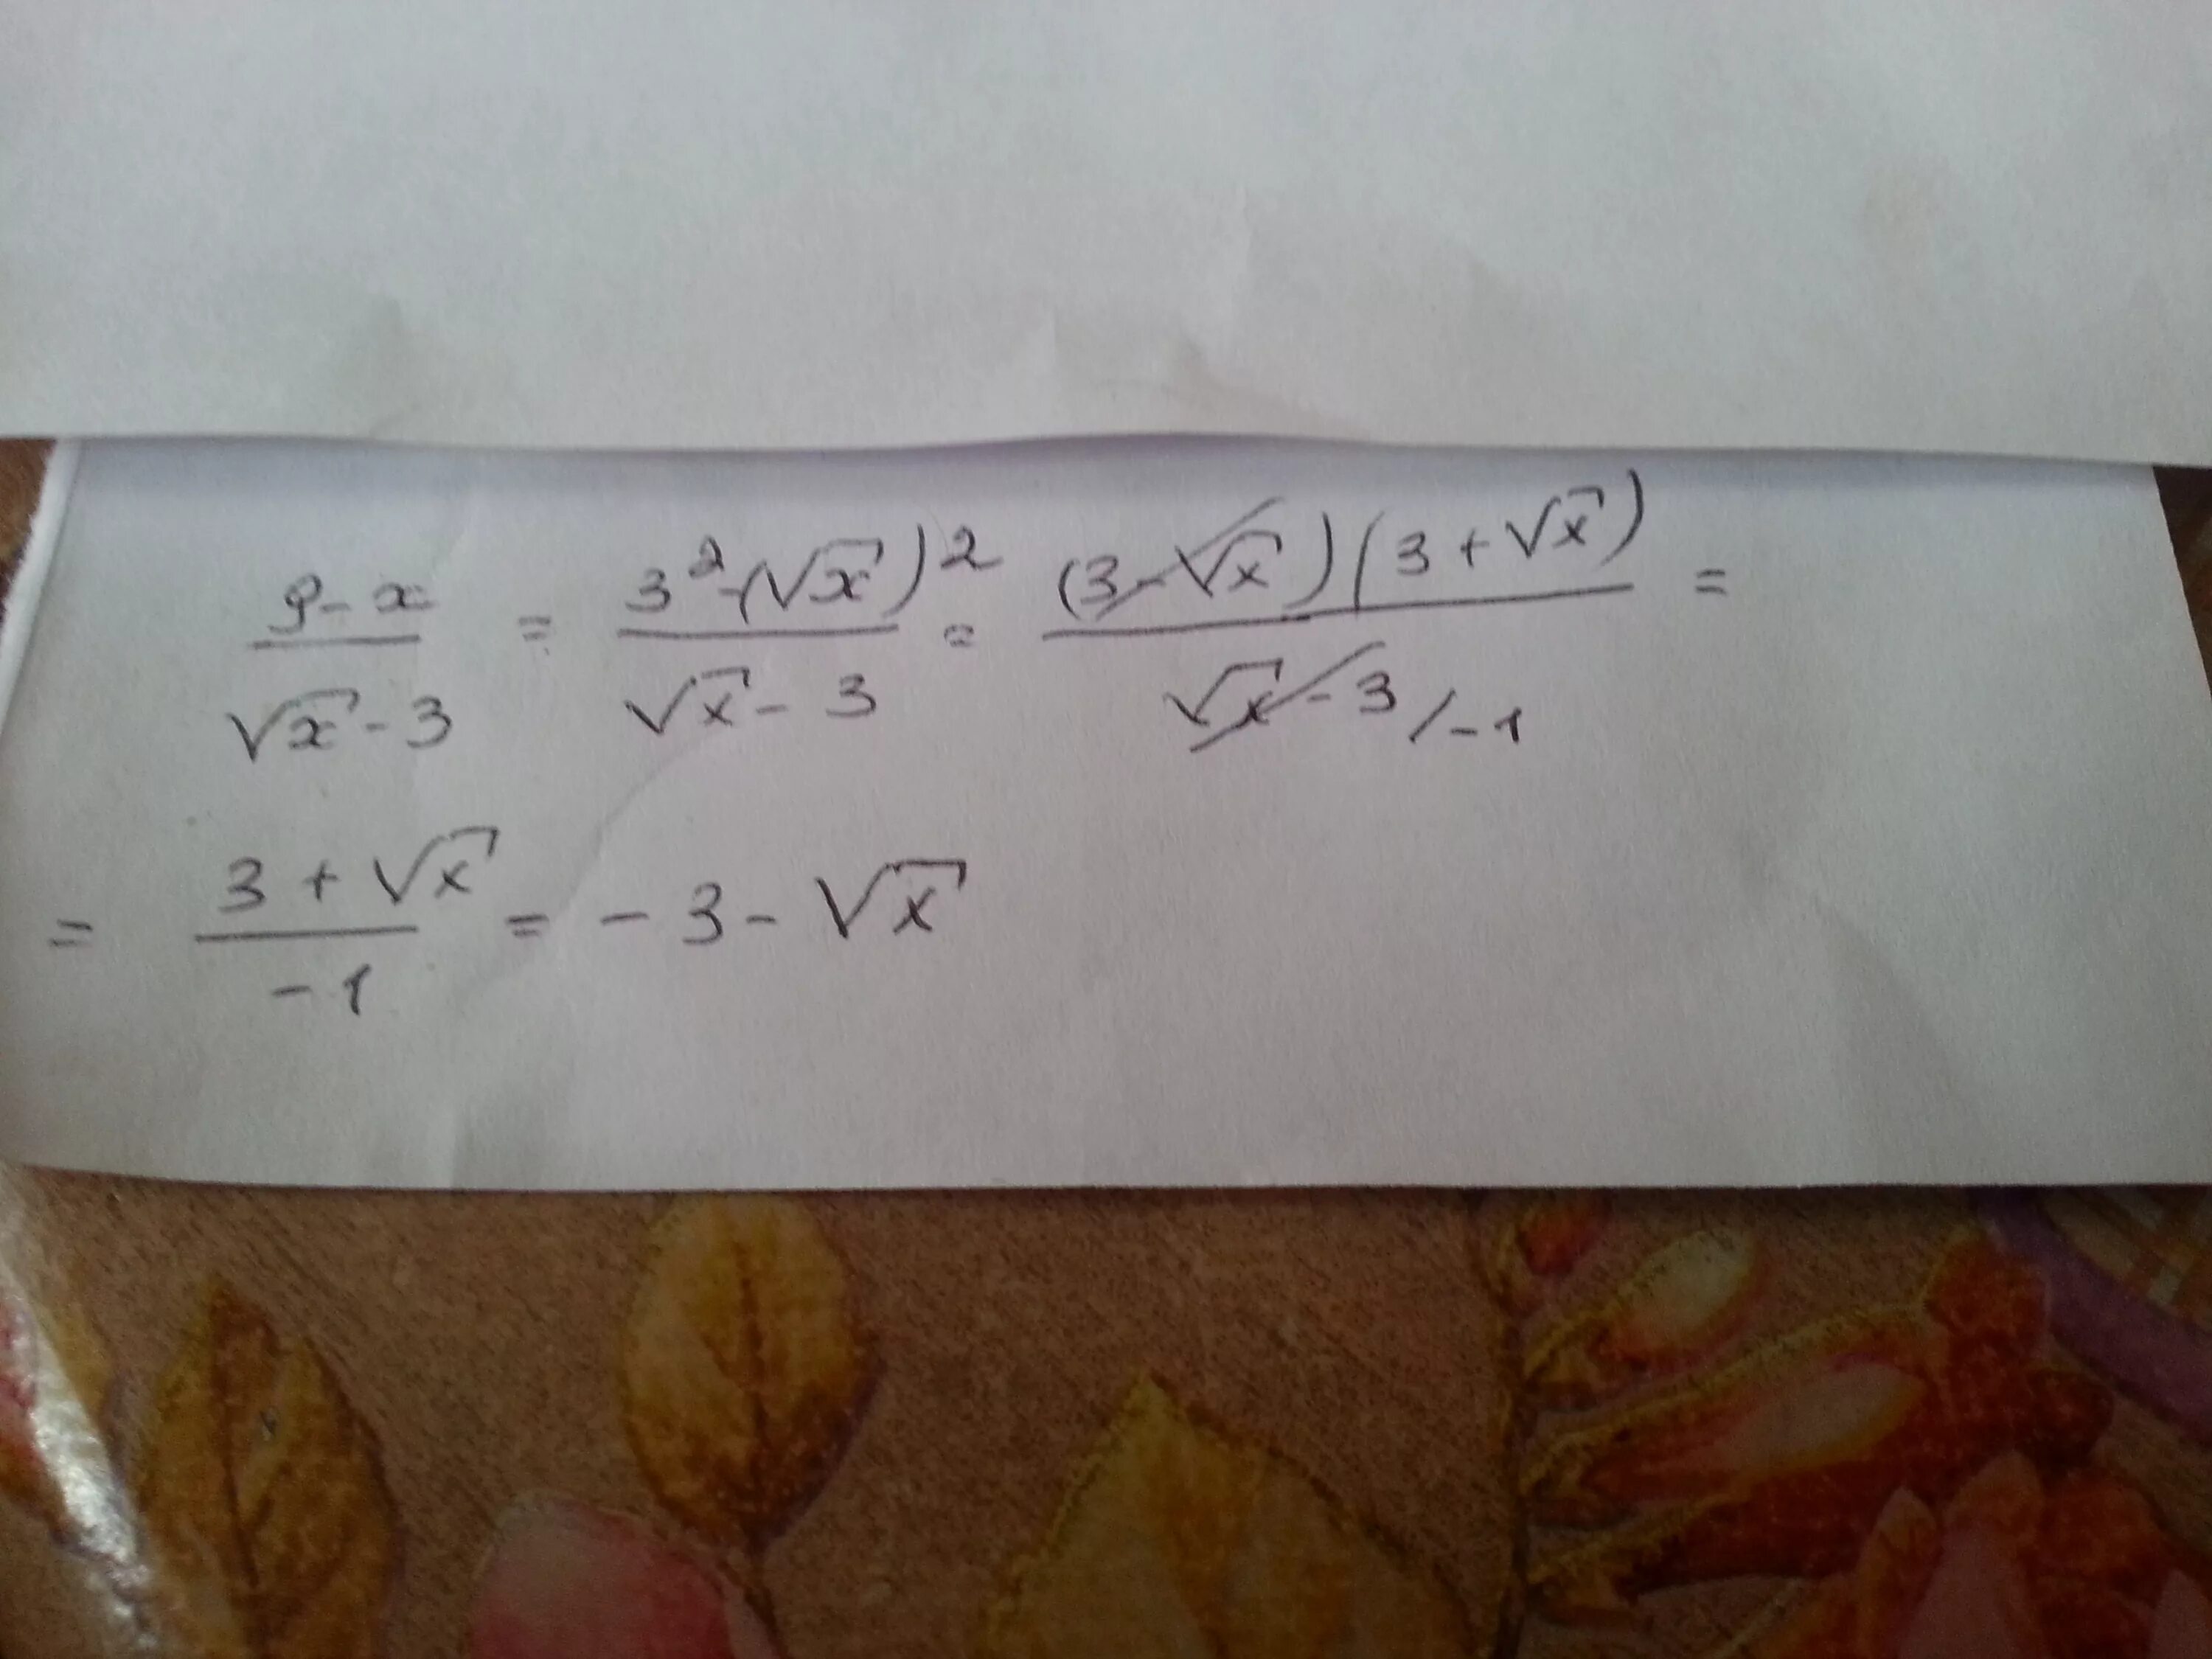 (9-x)/(√x-3) = (3²-(√x)²)/(√x-3) = ((3-√x)(3+√x))/(√x-3/-1) =
= (3+√x)/(-1) = -3-√x